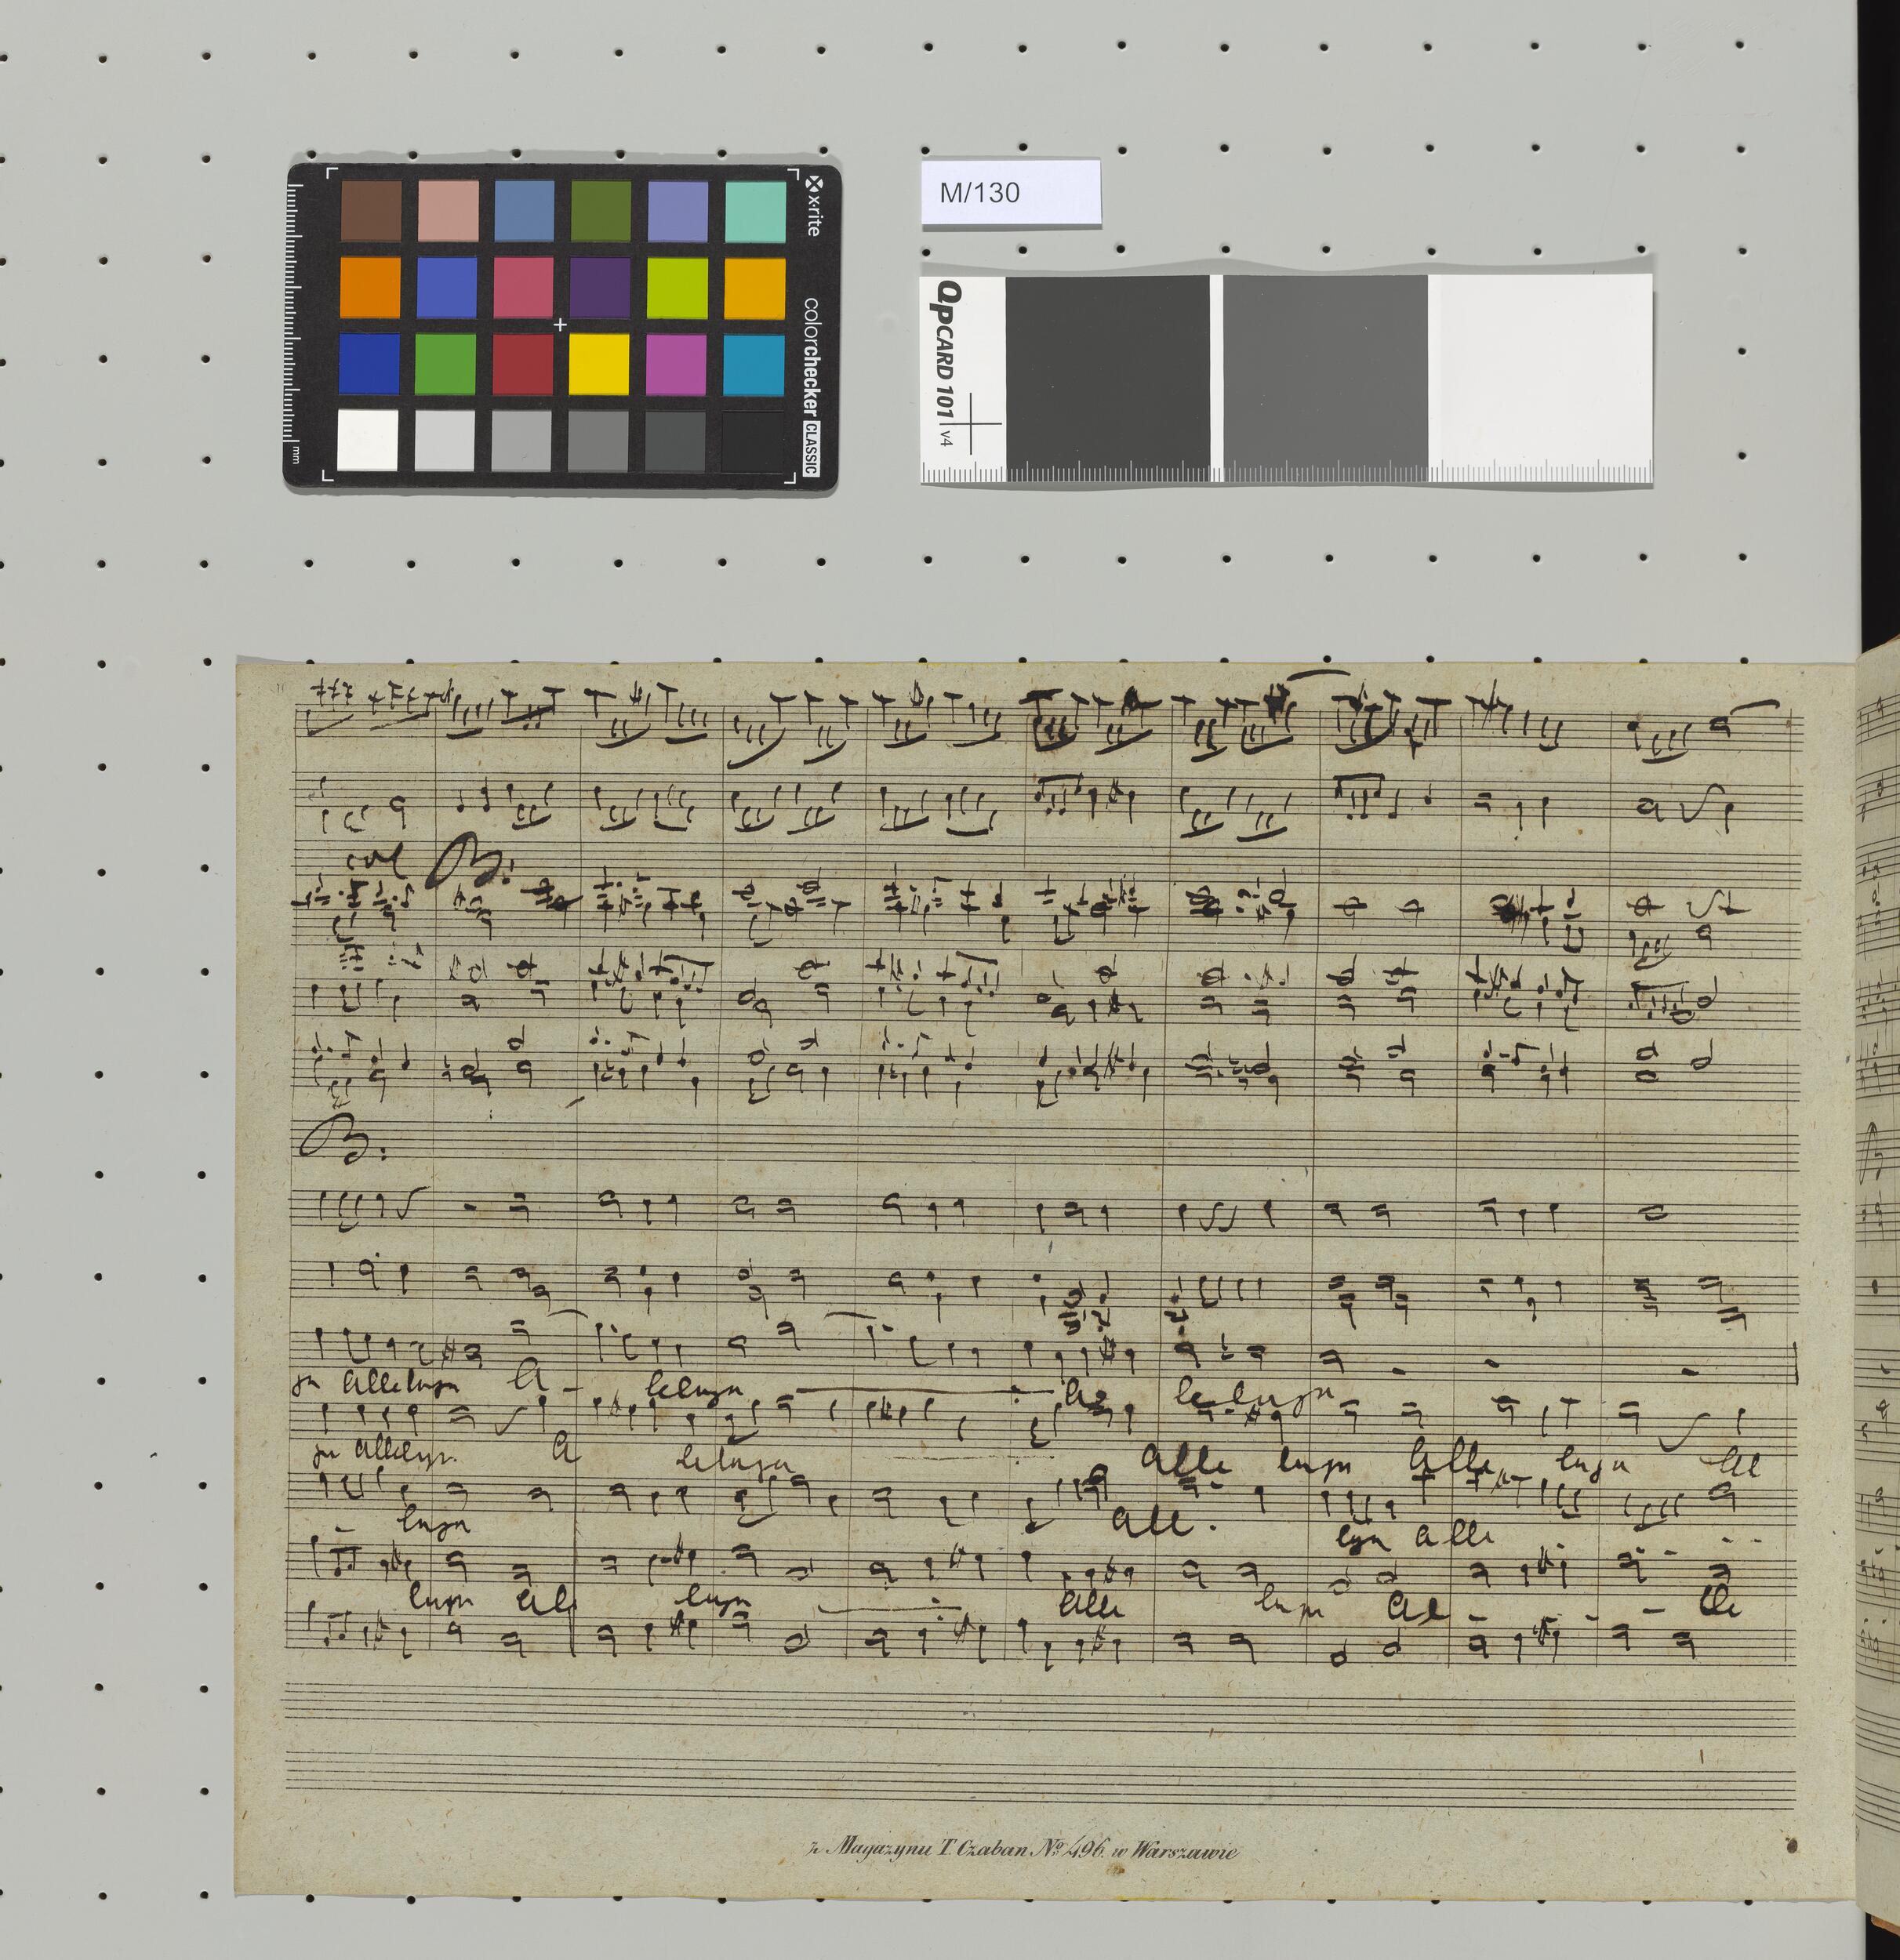 x·rite
colorchecker CLASSIC
mm
M/130
QPCARD 101 v4
col B:
B:
ja Alleluja A - leluja Al leluja
ja Alleluja A leluja Alle luja Alle luja Al
luja All. luja Alle
luja Al luja Alle luja Al Alle
z Magazynu T. Czaban No. 496. w Warszawie